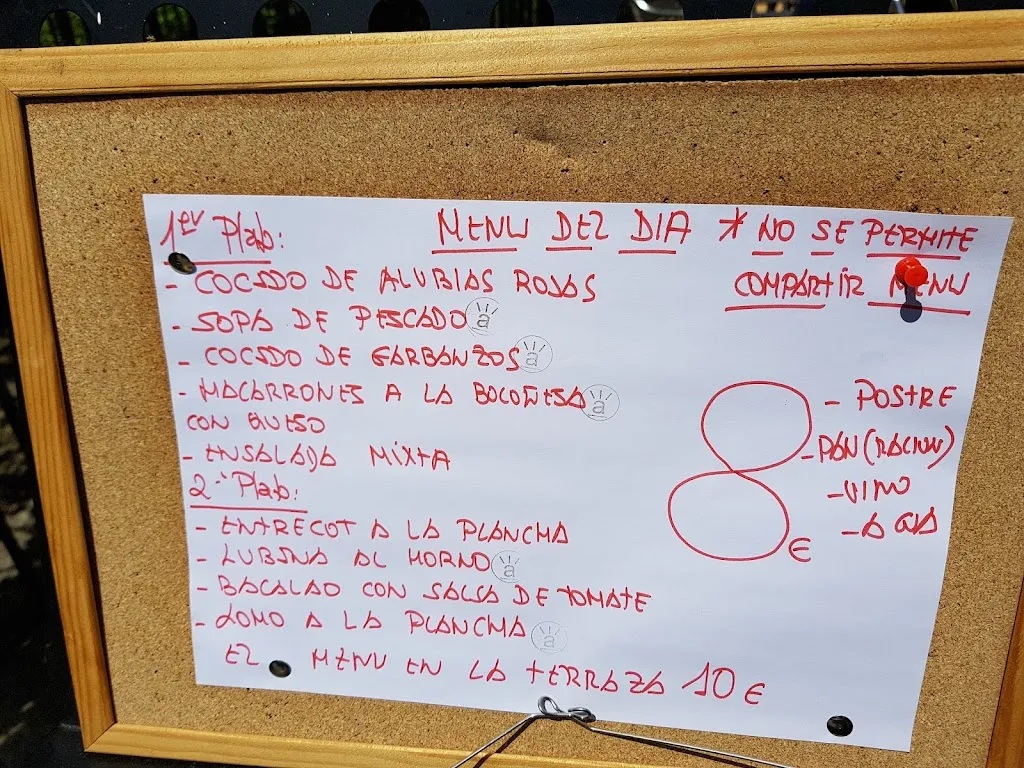 1er Plato:
MENU DEL DIA * NO SE PERMITE
COMPARTIR MENU
- COCIDO DE ALUBIAS ROJAS
- SOPA DE PESCADO a
- COCIDO DE GARBANZOS a
- MACARRONES A LA BOLOÑESA a
CON QUESO
- ENSALADA MIXTA
2º Plato:
- ENTRECOT A LA PLANCHA
- LUBINA AL HORNO a
- BACALAO CON SALSA DE TOMATE
- LOMO A LA PLANCHA a
EL MENU EN LA TERRAZA 10 €
8 €
- POSTRE
- PAN (RACION)
- VINO
- AGUA